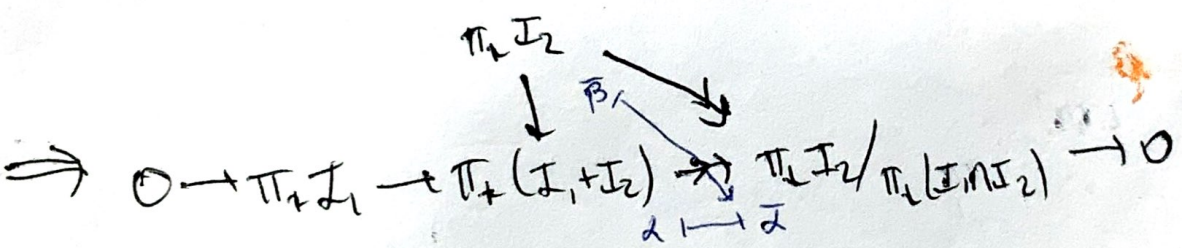 π_* I_2
β
⇒ 0 → π_* I_1 → π_* (I_1 + I_2) ↠ π_* I_2 / π_* (I_1 ∩ I_2) → 0
α ↦ ᾱ